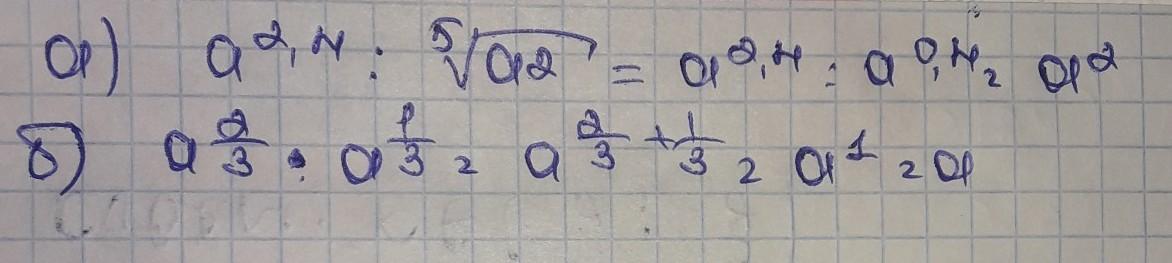 а) a^{2,4} : \sqrt[5]{a2} = a^{2,4} : a^{0,4} = a^2
б) a^{\frac{2}{3}} \cdot a^{\frac{1}{3}} = a^{\frac{2}{3} + \frac{1}{3}} = a^1 = a